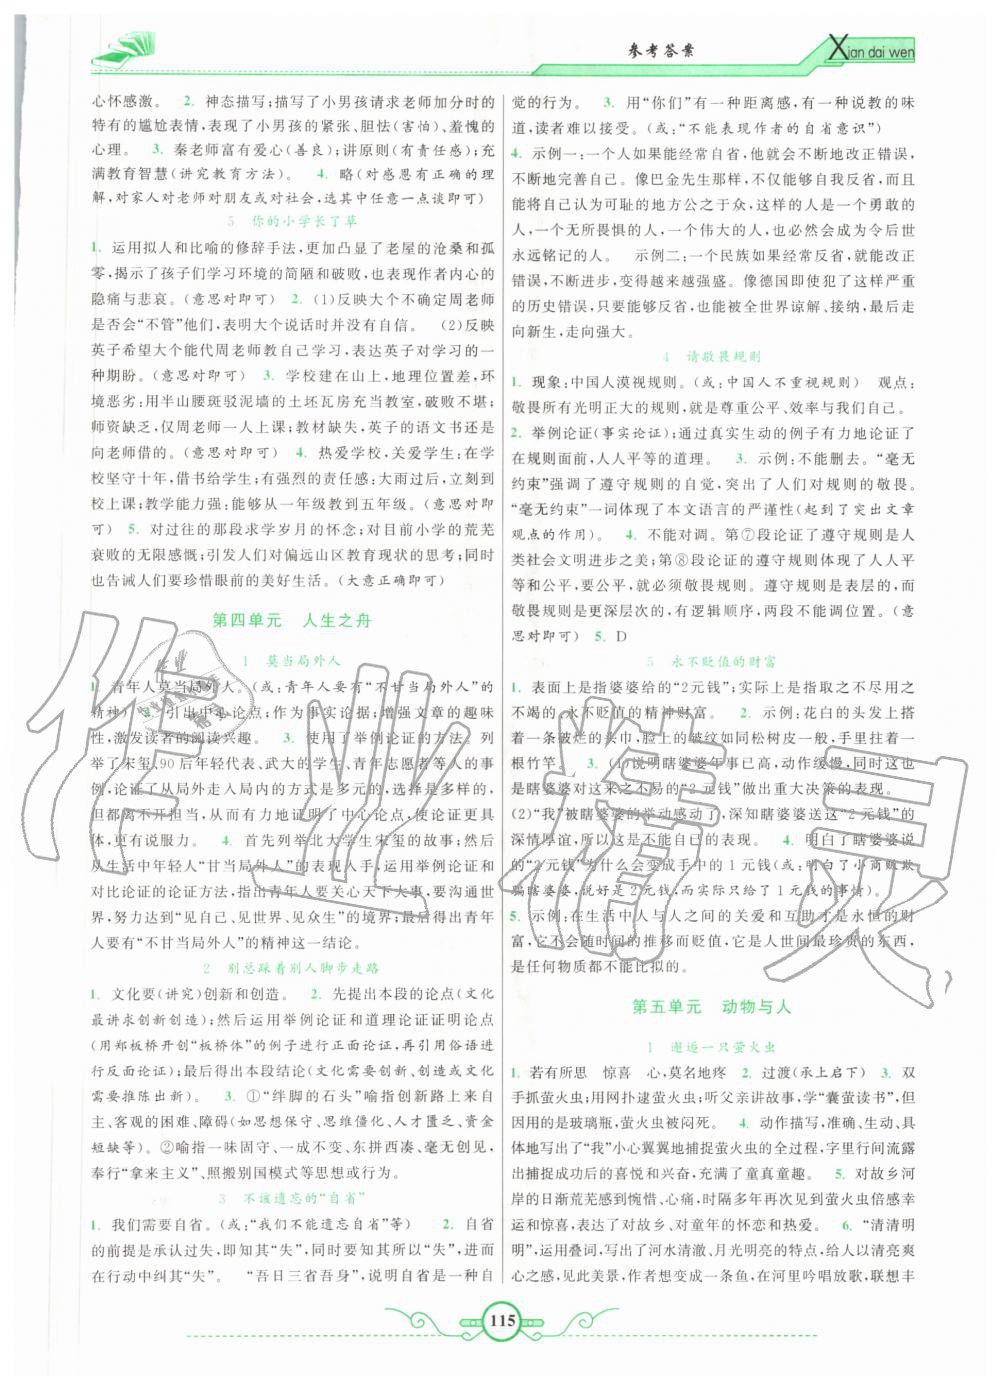 参考答案
Xian dai wen
心怀感激。 2. 神态描写;描写了小男孩请求老师加分时的
特有的尴尬表情,表现了小男孩的紧张、胆怯(害怕)、羞愧的
心理。 3. 秦老师富有爱心(善良);讲原则(有责任感);充
满教育智慧(讲究教育方法)。 4. 略(对感恩有正确的理
解,对家人对老师对朋友或对社会,选其中任意一点谈即可)
5 你的小学长了草
1. 运用拟人和比喻的修辞手法,更加凸显了老屋的沧桑和孤
零,揭示了孩子们学习环境的简陋和破败,也表现出作者内心的
隐痛与悲哀。(意思对即可) 2. (1)反映大个不确定周老师
是否会“不管”他们,表明大个说话时并没有自信。 (2)反映
英子希望大个能代周老师教自己学习,表达英子对学习的一
种期盼。(意思对即可) 3. 学校建在山上,地理位置偏远,环
境恶劣;用半山腰斑驳泥墙的土坯瓦房充当教室,破败不堪;
师资缺乏,仅周老师一人上课;教材缺失,英子的语文书还是
向老师借的。(意思对即可) 4. 热爱学校,关爱学生;在学
校坚守十年,借书给学生;有强烈的责任感:大雨过后,立刻到
校上课;教学能力强;能够从一年级教到五年级。(意思对即
可) 5. 对过往的那段求学岁月的怀念;对目前小学的荒芜
衰败的无限感慨;引发人们对偏远山区教育现状的思考;同时
也告诫人们要珍惜眼前的美好生活。(大意正确即可)
第四单元 人生之舟
1 莫当局外人
1. 青年人莫当局外人。(或:青年人要有“不甘当局外人”的
精神) 2. 引出中心论点;作为事实论据;增强文章的趣味
性,激发读者的阅读兴趣。 3. 使用了举例论证的方法。列
举了宋玺、90后年轻代表、武大的学生、青年志愿者等人的事
例,论证了从局外走入局内的方式是多元的,选择是多样的,
但都离不开担当,从而有力地证明了中心论点,使论证更具
体,更有说服力。 4. 首先列举北大学生宋玺的故事;然后
从生活中年轻人“甘当局外人”的表现入手,运用举例论证和
对比论证的论证方法,指出青年人要关心天下大事,要沟通世
界,努力达到“见自己、见世界、见众生”的境界;最后得出青年
人要有“不甘当局外人”的精神这一结论。
2 别总踩着别人脚步走路
1. 文化要(讲究)创新和创造。 2. 先提出本段的论点(文化
最讲求创新创造);然后运用举例论证和道理论证证明论点
(用郑板桥开创“板桥体”的例子进行正面论证,再进行反面论
证);最后得出本段结论(文化需要创新、创造/文化需要创新
需要推陈出新)。 3. ①“绊脚的石头”喻指创新路上来自主、
客观的困难、障碍(如思想保守、思维僵化、人才匮乏、资金
短缺等)。②喻指一味固守、一成不变、东拼西凑、毫无创见,
奉行“拿来主义”、照搬别国模式等思想或行为。
3 不该遗忘的“自省”
1. 我们需要自省。(或:“我们不能遗忘自省”等) 2. 自省
的前提是承认过失,即知其“失”,同时要知其所以“失”,进而
在行动中纠其“失”。 “吾日三省吾身”,说明自省是一种自
觉的行为。 3. 用“你们”有一种距离感,有一种说教的味
道,读者难以接受。(或:“不能表现作者的自省意识”)
4. 示例一:一个人如果能经常自省,他就会不断地改正错误,
不断地完善自己。像巴金先生那样,不仅坚持自我反省,而且
能将自己认为可耻的地方公之于众,这样的人是一个勇敢的
人,一个无所畏惧的人,一个伟大的人,也必然会成为令后世
永远铭记的人。 示例二:一个民族如果经常反省,就会改正
错误,不断进步,变得越来越强盛。像德国即使犯了这样严重
的历史错误,只要能够反省,也能被全世界谅解、接纳,最后走
向新生,走向强大。
4 请敬畏规则
1. 现象:中国人漠视规则。(或:中国人不重视规则) 观点:
敬畏所有光明正大的规则,就是尊重公平、效率与我们自己。
2. 举例论证(事实论证);通过真实生动的例子有力地论证了
在规则面前,人人平等的道理。 3. 示例:不能删去。“毫无
约束”强调了遵守规则的自觉,突出了人们对规则的敬畏。
“毫无约束”一词体现了本文语言的严谨性(起到了突出文章
观点的作用)。 4. 不能对调。第⑦段论证了遵守规则是人
类社会文明进步之美;第⑧段论证的遵守规则体现了人人平
等和公平,要公平,就必须敬畏规则。遵守规则是表层的,而
敬畏规则是更深层次的,有逻辑顺序,两段不能调位置。(意
思对即可) 5. D
5 永不贬值的财富
1. 表面上是指婆婆给的“2元钱”;实际上是指取之不尽用之
不竭的、永不贬值的精神财富。 2. 示例:花白的头发上搭
着一条破烂的头巾,脸上的皱纹如同松树皮一般,手里拿着一
根竹竿。 3. (1)说明瞎婆婆年事已高,动作缓慢,同时这
也是瞎婆婆对这来之不易的“2元钱”做出重大决策的表现。
(2)“我”被瞎婆婆的举动感动了,深知瞎婆婆送这“2元钱”的
深情厚谊,所以这是不能自已的表现。 4. 明白了瞎婆婆说
的“2元钱”为什么会变成手中的1元钱(或:明白了小商贩欺
骗瞎婆婆,说好是2元钱,而实际只给了1元钱的事情)。
5. 示例:在生活中人与人之间的关爱和互助才是永恒的财
富,它不会随时间的推移而贬值,它是人世间最珍贵的东西,
是任何物质都不能比拟的。
第五单元 动物与人
1 邂逅一只萤火虫
1. 若有所思 惊喜 心,莫名地疼 2. 过渡(承上启下) 3. 双
手抓萤火虫;用网扑逮萤火虫;听父亲讲故事,学“囊萤读书”,但
因用的是玻璃瓶,萤火虫闷死了。 4. 动作描写,准确、生动、具
体地写出了“我”小心翼翼地捕捉萤火虫的全过程,字里行间流露
出捕捉成功后的喜悦和兴奋,充满了童真童趣。 5. 对故乡河
岸的日渐荒芜感到惋惜、心痛,时隔多年又见到萤火虫倍感幸
运和惊喜,表达了对故乡、对童年的怀恋和热爱。 6. “清清明
明”,运用叠词,写出了河水清澈、月光明亮的特点,给人以清亮爽
心之感,见此美景,作者想变成一条鱼,在河里吟唱放歌,联想丰
115